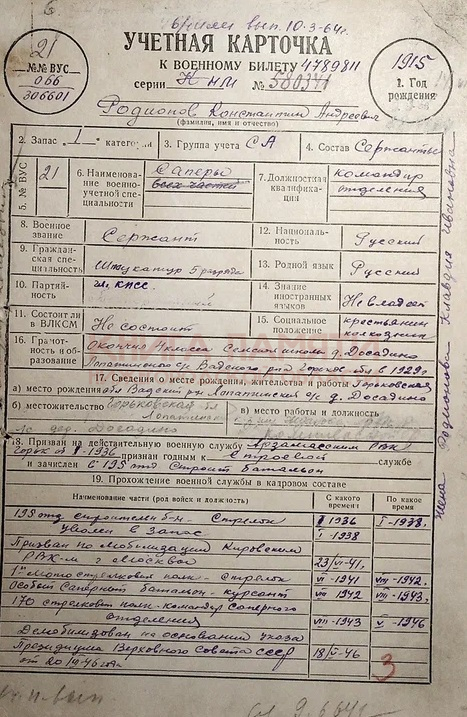 б/или вып. 10-3-64г.
21
№№ ВУС
066
306601
УЧЕТНАЯ КАРТОЧКА
К ВОЕННОМУ БИЛЕТУ 4789811
серии НМИ № 580341
1915
1. Год рождения
Родионов Константин Андреевич
(фамилия, имя и отчество)
2. Запас 1 категории
3. Группа учета СА
4. Состав Сержанты
5. № ВУС 21
6. Наименование военно-учетной специальности Саперы всех частей
7. Должностная квалификация командир отделения
8. Военное звание Сержант
12. Национальность Русский
9. Гражданская специальность Штукатур 5 разряда
13. Родной язык Русский
10. Партийность чл. КПСС.
14. Знание иностранных языков Не владеет
11. Состоит ли в ВЛКСМ Не состоит
15. Социальное положение крестьянин колхозник
16. Грамотность и образование Окончил 4 класса школы д. Досадино
Лопатинского с/с Вадского р-на Горьк. обл в 1929 г.
17. Сведения о месте рождения, жительства и работы Горьковская
а) место рождения обл Вадский р-н Лопатинский с/с д. Досадино
б) местожительство Горьковская обл Лопатинск
в) место работы и должность
дер Досадино
18. Призван на действительную военную службу Арзамасским РВК
Горьк об I-1936 признан годным к строевой службе
и зачислен в 195 отд Строит Батальон
19. Прохождение военной службы в кадровом составе
Наименование части (род войск и должность)
С какого времени
По какое время
195 отд строительн б-н - Стрелок I 1936 I-1938.
уволен в запас I-1938
Призван по мобилизации Кировским
РВК-м г Москвы 23/VI-41.
1ый Мотострелковый полк - Стрелок VI-1941 VIII-1942.
Особый Саперный батальон - курсант VIII 1942 VIII-1943.
170 стрелковый полк - командир саперного
отделения VIII-1943 V-1946
Демобилизован на основании указа
Президиума Верховного Совета СССР 18/V-46
от 20 1946 года
3
Жена Родионова Клавдия Ивановна